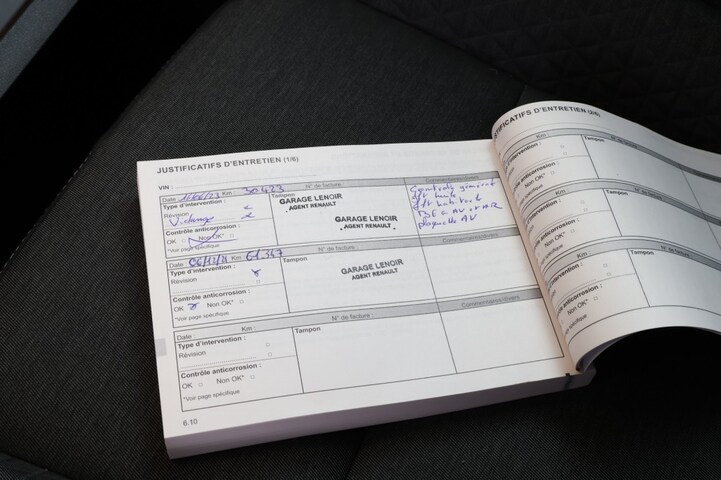 JUSTIFICATIFS D'ENTRETIEN (1/6)
VIN :
Date : Km : 30423 N° de facture Commentaires/divers
Type d'intervention : Tampon
Révision
Vidange
Contrôle anticorrosion :
OK Non OK*
*Voir page spécifique
GARAGE LENOIR
AGENT RENAULT
GARAGE LENOIR
AGENT RENAULT
Contrôle général
plaquette AV
Date : Km : 61.343 N° de facture Commentaires/divers
Type d'intervention : Tampon
Révision
Contrôle anticorrosion :
OK Non OK*
*Voir page spécifique
GARAGE LENOIR
AGENT RENAULT
Date : Km : N° de facture Commentaires/divers
Type d'intervention : Tampon
Révision
Contrôle anticorrosion :
OK Non OK*
*Voir page spécifique
6.10
JUSTIFICATIFS D'ENTRETIEN (2/6)
Km :
d'intervention :
anticorrosion :
Non OK*
spécifique
Km :
d'intervention :
anticorrosion :
Non OK*
spécifique
Km :
d'intervention :
anticorrosion :
Non OK*
spécifique